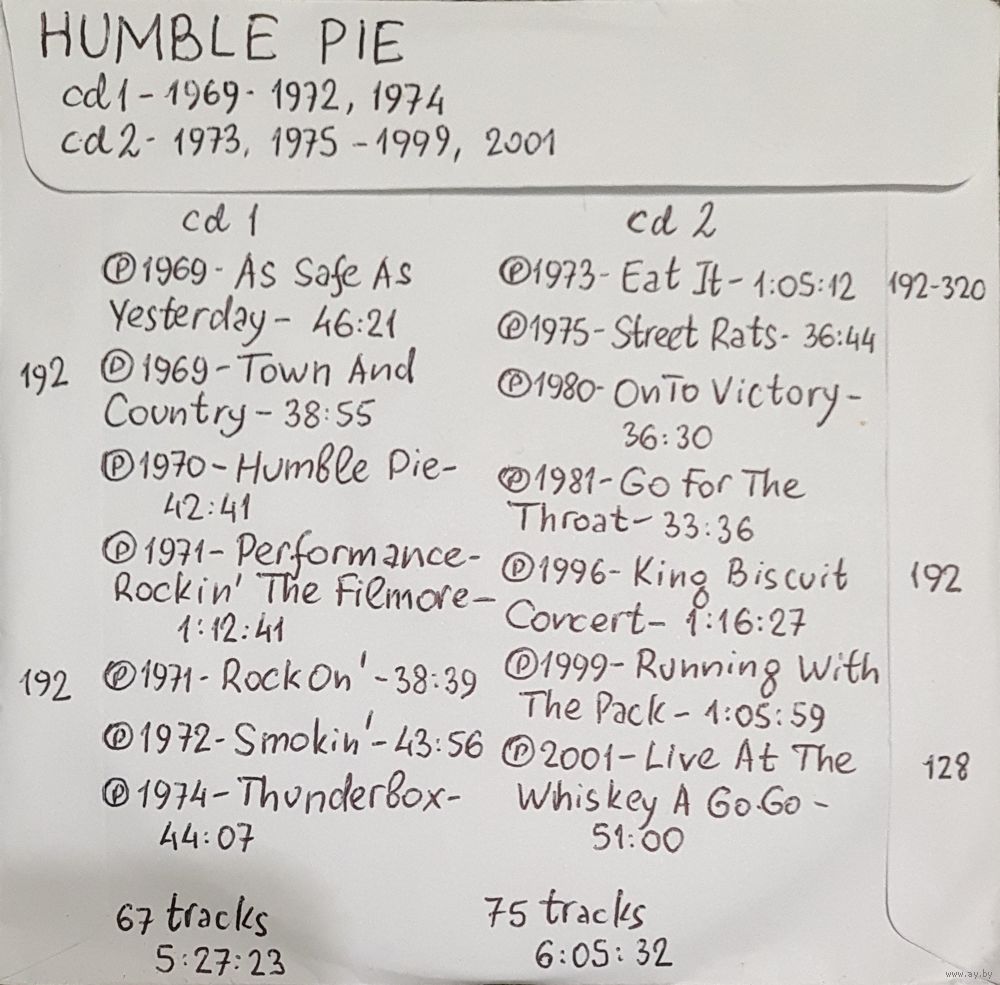 HUMBLE PIE
cd1 - 1969 - 1972, 1974
cd2 - 1973, 1975 - 1999, 2001
cd 1
Ⓟ1969 - As Safe As
Yesterday - 46:21
192 Ⓟ1969 - Town And
Country - 38:55
Ⓟ1970 - Humble Pie -
42:41
Ⓟ1971 - Performance -
Rockin' The Filmore -
1:12:41
192 Ⓟ1971 - Rock On' - 38:39
Ⓟ1972 - Smokin' - 43:56
Ⓟ1974 - Thunderbox -
44:07
67 tracks
5:27:23
cd 2
Ⓟ1973 - Eat It - 1:05:12 192-320
Ⓟ1975 - Street Rats - 36:44
Ⓟ1980 - On To Victory -
36:30
Ⓟ1981 - Go For The
Throat - 33:36
Ⓟ1996 - King Biscuit 192
Concert - 1:16:27
Ⓟ1999 - Running With
The Pack - 1:05:59
Ⓟ2001 - Live At The 128
Whiskey A Go-Go -
51:00
75 tracks
6:05:32
www.ay.by